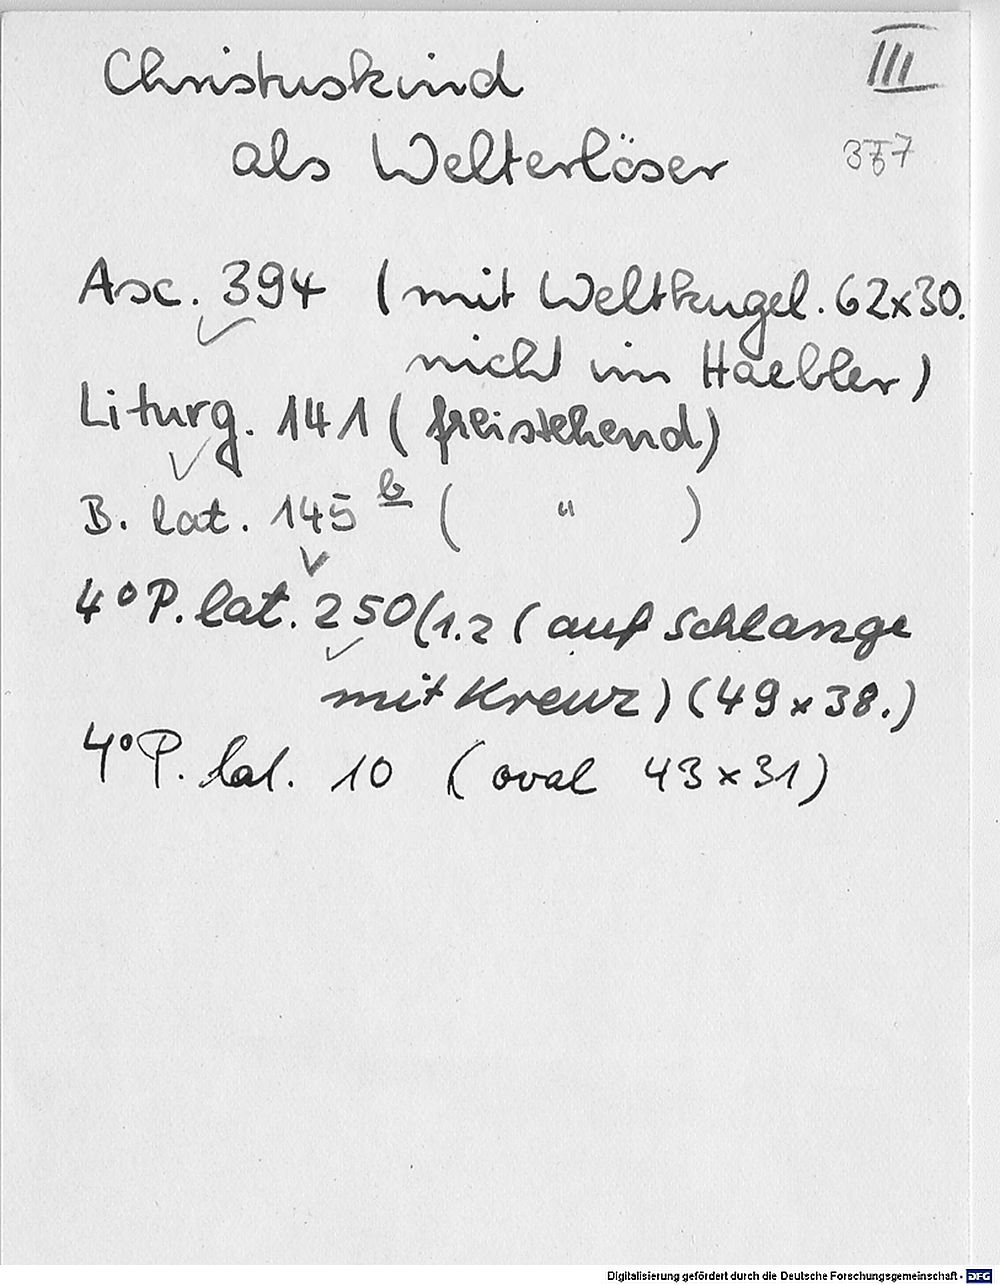 Christuskind
III
als Welterlöser
Asc. 394 (mit Weltkugel. 62x30.
nicht im Haebler)
Liturg. 141 (freistehend)
B. lat. 145 b ( " )
4° P. lat. 250(1.2 (auf Schlange
mit Kreuz) (49 x 38.)
4° P. lat. 10 (oval 43 x 31)
Digitalisierung gefördert durch die Deutsche Forschungsgemeinschaft - DFG